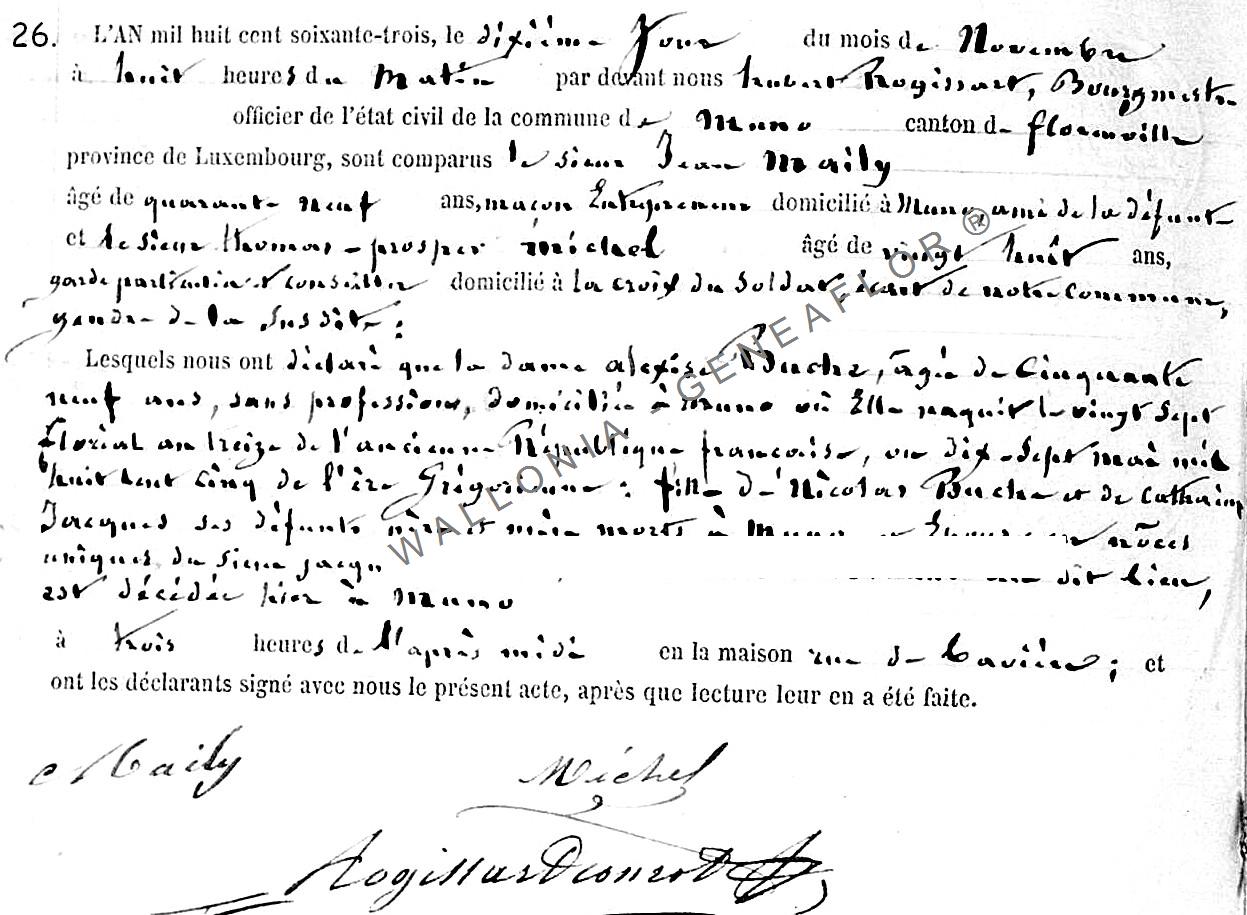 26. L'AN mil huit cent soixante-trois, le dixième Jour du mois de Novembre
à huit heures du Matin par devant nous hubert Rogissart, Bourgmestre
officier de l'état civil de la commune de Muno canton de florenville
province de Luxembourg, sont comparus le sieur Jean Maily
âgé de quarante neuf ans, maçon Entrepreneur domicilié à Muno, ami de la défunte
et le sieur thomas-prosper michel âgé de vingt huit ans,
garde particulier et conseiller domicilié à la croix du Soldat, écart de notre Commune,
gendre de la susdite:
Lesquels nous ont déclaré que la dame alexise Buche, agée de Cinquante
neuf ans, sans profession, domiciliée à muno où Elle naquit le vingt sept
floréal an treize de l'ancienne République française, ou dix-sept mai mil
huit cent cinq de l'ère Grégorienne: fille de Nicolas Buche et de Catherine
Jacques ses défunts père et mère morts à Muno en nôces
uniques du sieur dit lieu,
est décédée hier à Muno
à trois heures de l'après midi en la maison rue de Cavière; et
ont les déclarants signé avec nous le présent acte, après que lecture leur en a été faite.
Maily Michel
WALLONIA GENEAFLOR ®